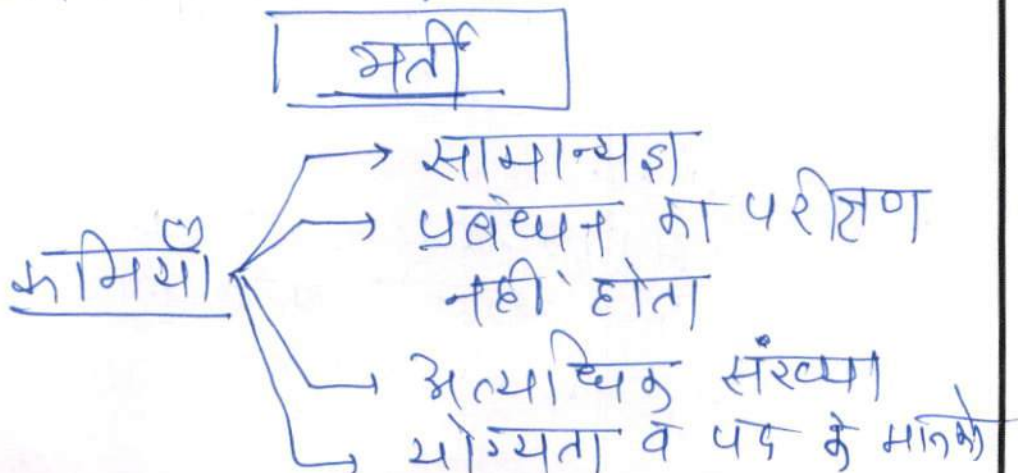 भर्ती
कमियाँ
सामान्यज्ञ
प्रबंधन का परीक्षण
नहीं होता
अत्याधिक संख्या
योग्यता व पद के मानको